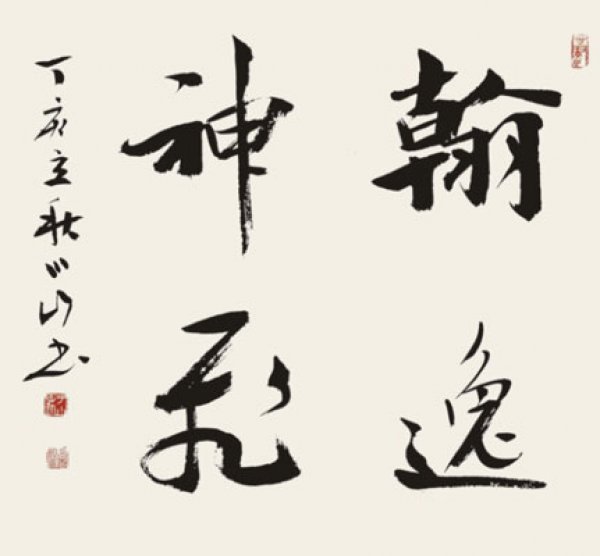 翰逸
神飞
丁亥立秋山书